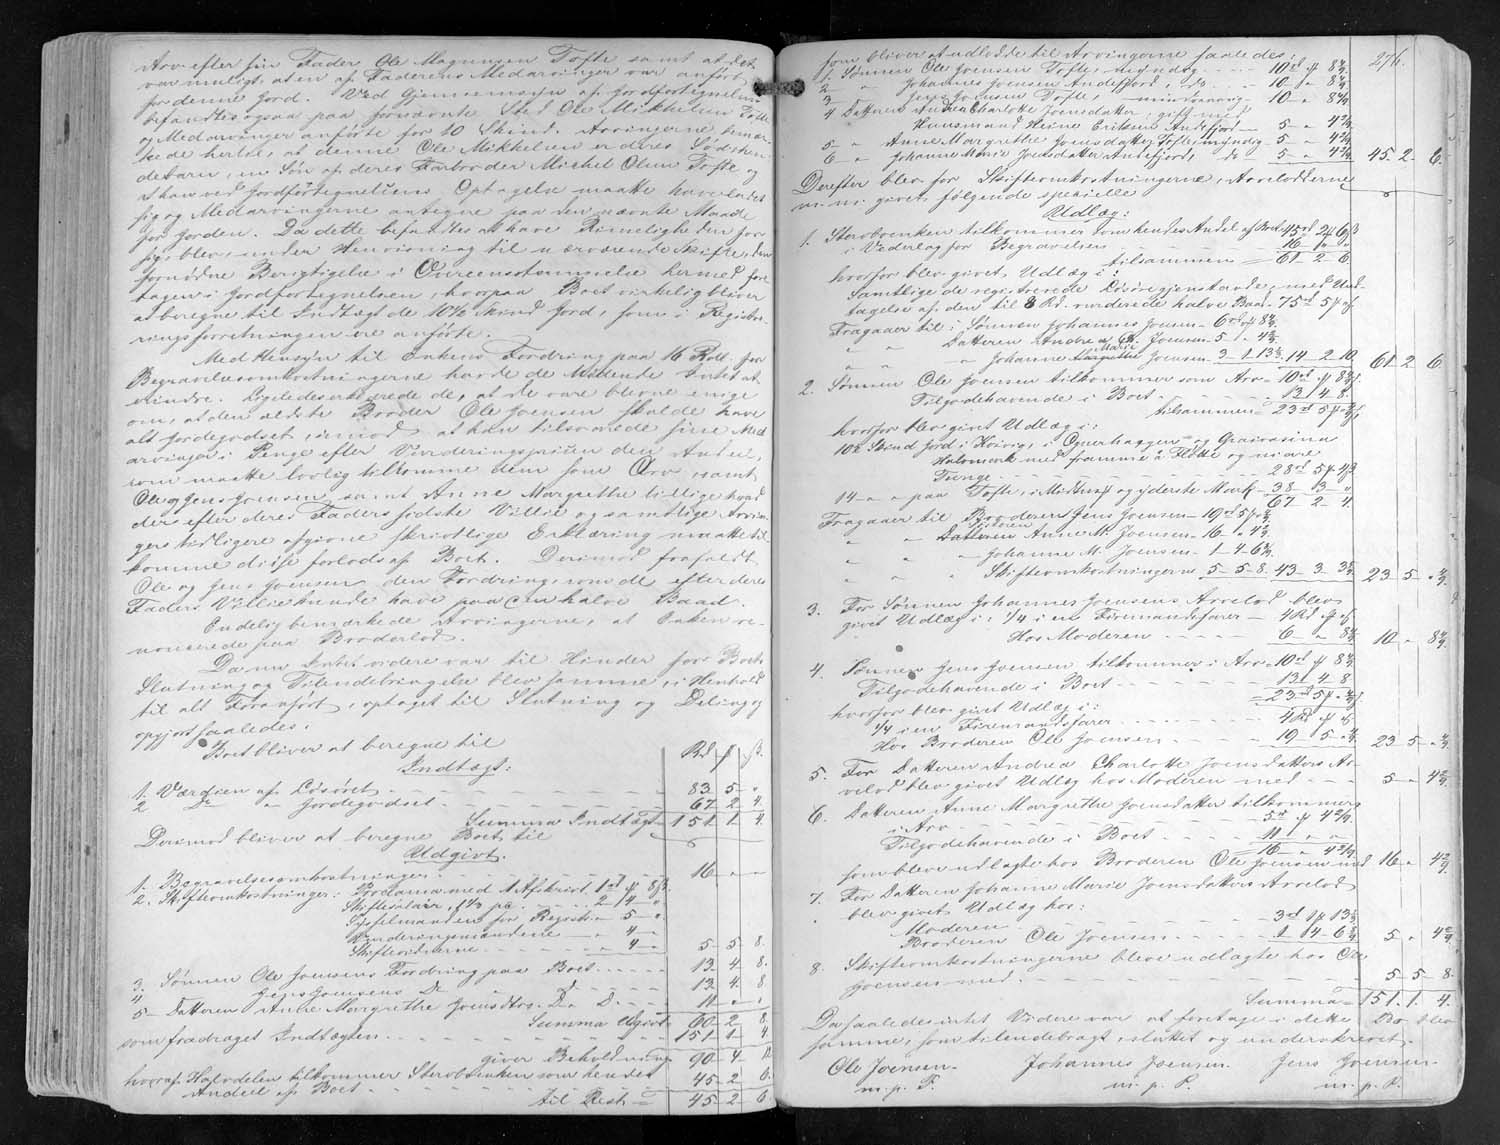 Arv efter sin Fader Ole Magnussen Tofte samt at det
var muligt, at en af Faderens Medarvinger var anført
for denne Jord. Ved Gjennemsyn af Jordfortegnelsen
befandtes ogsaa paa fornævnte Sted Ole Mikkelsen Tofte
og Medarvinger anførte for 10 Skind. Arvingerne bemær-
kede hertil, at denne Ole Mikkelsen er deres Sødsken-
debarn, en Søn af deres Farbroder Michel Olsen Tofte og
at han ved Jordfortegnelsens Optagelse maatte have ladet
sig og Medarvingerne antegne paa den nævnte Maade
for Jorden. Da dette befandtes at have Rimelighed for
sig, blev, under Henvisning til nærværende Skifte, den
fornødne Berigtigelse i Overeensstemmelse hermed fore-
tagen i Jordfortegnelsen, hvorpaa Boet virkelig bliver
at beregne til Indtægt de 10½ Skind Jord, som i Registre-
ringsforretningen ere anførte.
Med Hensyn til Enkens Fordring paa 16 Rdl. for
Begravelsesomkostningerne havde de Mødende Intet at
erindre. Ligeledes erklærede de, at de vare blevne enige
om, at den ældste Broder Ole Joensen skulde have
alt Jordegodset, imod at han tilsvarede sine Med-
arvinger i Penge efter Vurderingsprisen den Andel,
som maatte lovlig tilkomme dem som Arv, samt
Ole og Jens Joensen samt Anne Margrethe tillige hvad
der efter deres Faders sidste Villie og samtlige Arvin-
gers tidligere afgivne skriftlige Erklæring maatte til-
komme disse forlods af Boet. Derimod frafaldt
Ole og Jens Joensen den Fordring, som de efter deres
Faders Villie kunde have paa en halv Baad.
Endelig bemærkede Arvingerne, at Enken re-
noncerede paa Broderlod.
Da nu Intet videre var til Hinder for Boets
Slutning og Tilendebringelse blev samme, i Henhold
til alt Foranført, optaget til Slutning og Deling og
opgjort saaledes:
Boet bliver at beregne til
Indtægt: Rd ƒ ß
1. Værdien af Løsøret 83 5 "
2 Do " Jordegodset 67 2 4
Summa Indtægt 151 1 4.
Derimod bliver at beregne Boet til
Udgivt.
1. Begravelsesomkostninger 16 " "
2. Skifteomkostninger: Proclama med 1 Afskrivt 1rd ƒ 8ß
Skiftesalair, 1⅓ pc. 2 4 "
Sysselmanden for Registr. 5 "
Vurderingsmændene 4 "
Skiftevidnerne 4 " 5 5 8.
3. Sønnen Ole Joensens Fordring paa Boet 13 4 8.
4 " Jens Joensens Do D. 13 4 8.
5 Datteren Anne Margrethe Joensdtrs. Do D. 11 " "
Summa Udgivt 60 2 8.
som fradraget Indtægten 151 1 4
giver Beholdning 90 4 12
hvoraf Halvdelen tilkommer Sterboenken som hendes
Andeel af Boet 45 2 6.
til Rest 45 2 6
276.
som bliver at udlodde til Arvingerne saaledes:
1. Sønnen Ole Joensen Tofte, myndig 10rd ƒ 8 4/9
2 " Johannes Joensen Andefjord, do 10 " 8 4/9
3 " Jens Joensen Tofte mindreaarig 10 " 8 4/9
4 Datteren Andrea Charlotte Joensdatter, gift med
Huusmand Heine Eriksen Andefjord 5 " 4 2/9
5 " Anne Margrethe Joensdatter Tofte, myndig 5 " 4 2/9
6 " Johanne Marie Joensdatter Andefjord, do 5 " 4 2/9 45 2 6.
Derefter blev for Skifteomkostningerne, Arvelodderne
m. m. givet følgende specielle
Udlæg:
1. Sterboenken tilkommer som hendes Andel af Boet 45rd 2ƒ 6ß
i Vederlag for Begravelsen 16 " "
tilsammen 61 2 6
hvorfor blev givet Udlæg i:
Samtlige de registrerede Løsøregjenstande, med Und-
tagelse af den til 8 Rd. vurderede halve Baad 75rd 5ƒ "ß
Fragaaer til: Sønnen Johannes Joensen 6rd "ƒ 8 4/9
" " Datteren Andrea Ch. Joensen 5 " 4 2/9
" " " Johanne Marie Joensen 3 1 13⅓ 14 2 10 61 2 6.
2. Sønnen Ole Joensen tilkommer som Arv 10rd ƒ 8 4/9
Tilgodehavende i Boet 13 4 8.
tilsammen 23rd 5ƒ 4/9
hvorfor blev givet Udlæg i:
10½ Skind Jord i Hoivig, i Qverhaggen og Graivasina
Halvmark med framme á Fløtte og niare
Tunge 28rd 5ƒ 4ß
14 " " paa Tofte, i Midtum og yderste Mark 38 3 "
67 2 4.
Fragaaer til Broderen Jens Joensen 19rd 5ƒ 4/9
" " Søsteren Anne M. Joensen 16 " 4 2/9
" " " Johanne M. Joensen 1 4 6 8/9
" " Skifteomkostningerne 5 5 8. 43 3 3 5/9 23 5 " 4/9.
3. For Sønnen Johannes Joensens Arvelod blev
givet Udlæg i: ¼ i en Firemandsfarer 4 Rd ƒ ß
Hos Moderen 6 " 8 4/9 10 " 8 4/9.
4. Sønnen Jens Joensen tilkommer i Arv 10rd ƒ 8 4/9
Tilgodehavende i Boet 13 4 8
23rd 5ƒ 4/9
hvorfor blev givet Udlæg i:
¼ i en Firemandsfarer 4 Rd ƒ ß
Hos Broderen Ole Joensen 19 5 4/9 23 5 " 4/9.
5. For Datteren Andrea Charlotte Joensdatters Ar-
velod blev givet Udlæg hos Moderen med 5 " 4 2/9.
6. Datteren Anne Margrethe Joensdatter tilkommer
i Arv 5rd ƒ 4 2/9
Tilgodehavende i Boet 11 " "
16 " 4 2/9
som bleve udlagte hos Broderen Ole Joensen med 16 " 4 2/9.
7. For Datteren Johanne Marie Joensdatters Arvelod
blev givet Udlæg hos:
Moderen 3rd 1ƒ 13⅓
Broderen Ole Joensen 1 4 6 8/9 5 " 4 2/9
8. Skifteomkostningerne bleve udlagte hos Ole
Joensen med 5 5 8.
Summa 151. 1. 4.
Da saaledes intet Videre var at foretage i dette Bo blev
samme, som tilendebragt, sluttet og underskrevet.
Ole Joensen. Johannes Joensen. Jens Joensen
m. p. P. m. p. P. m. p. P.